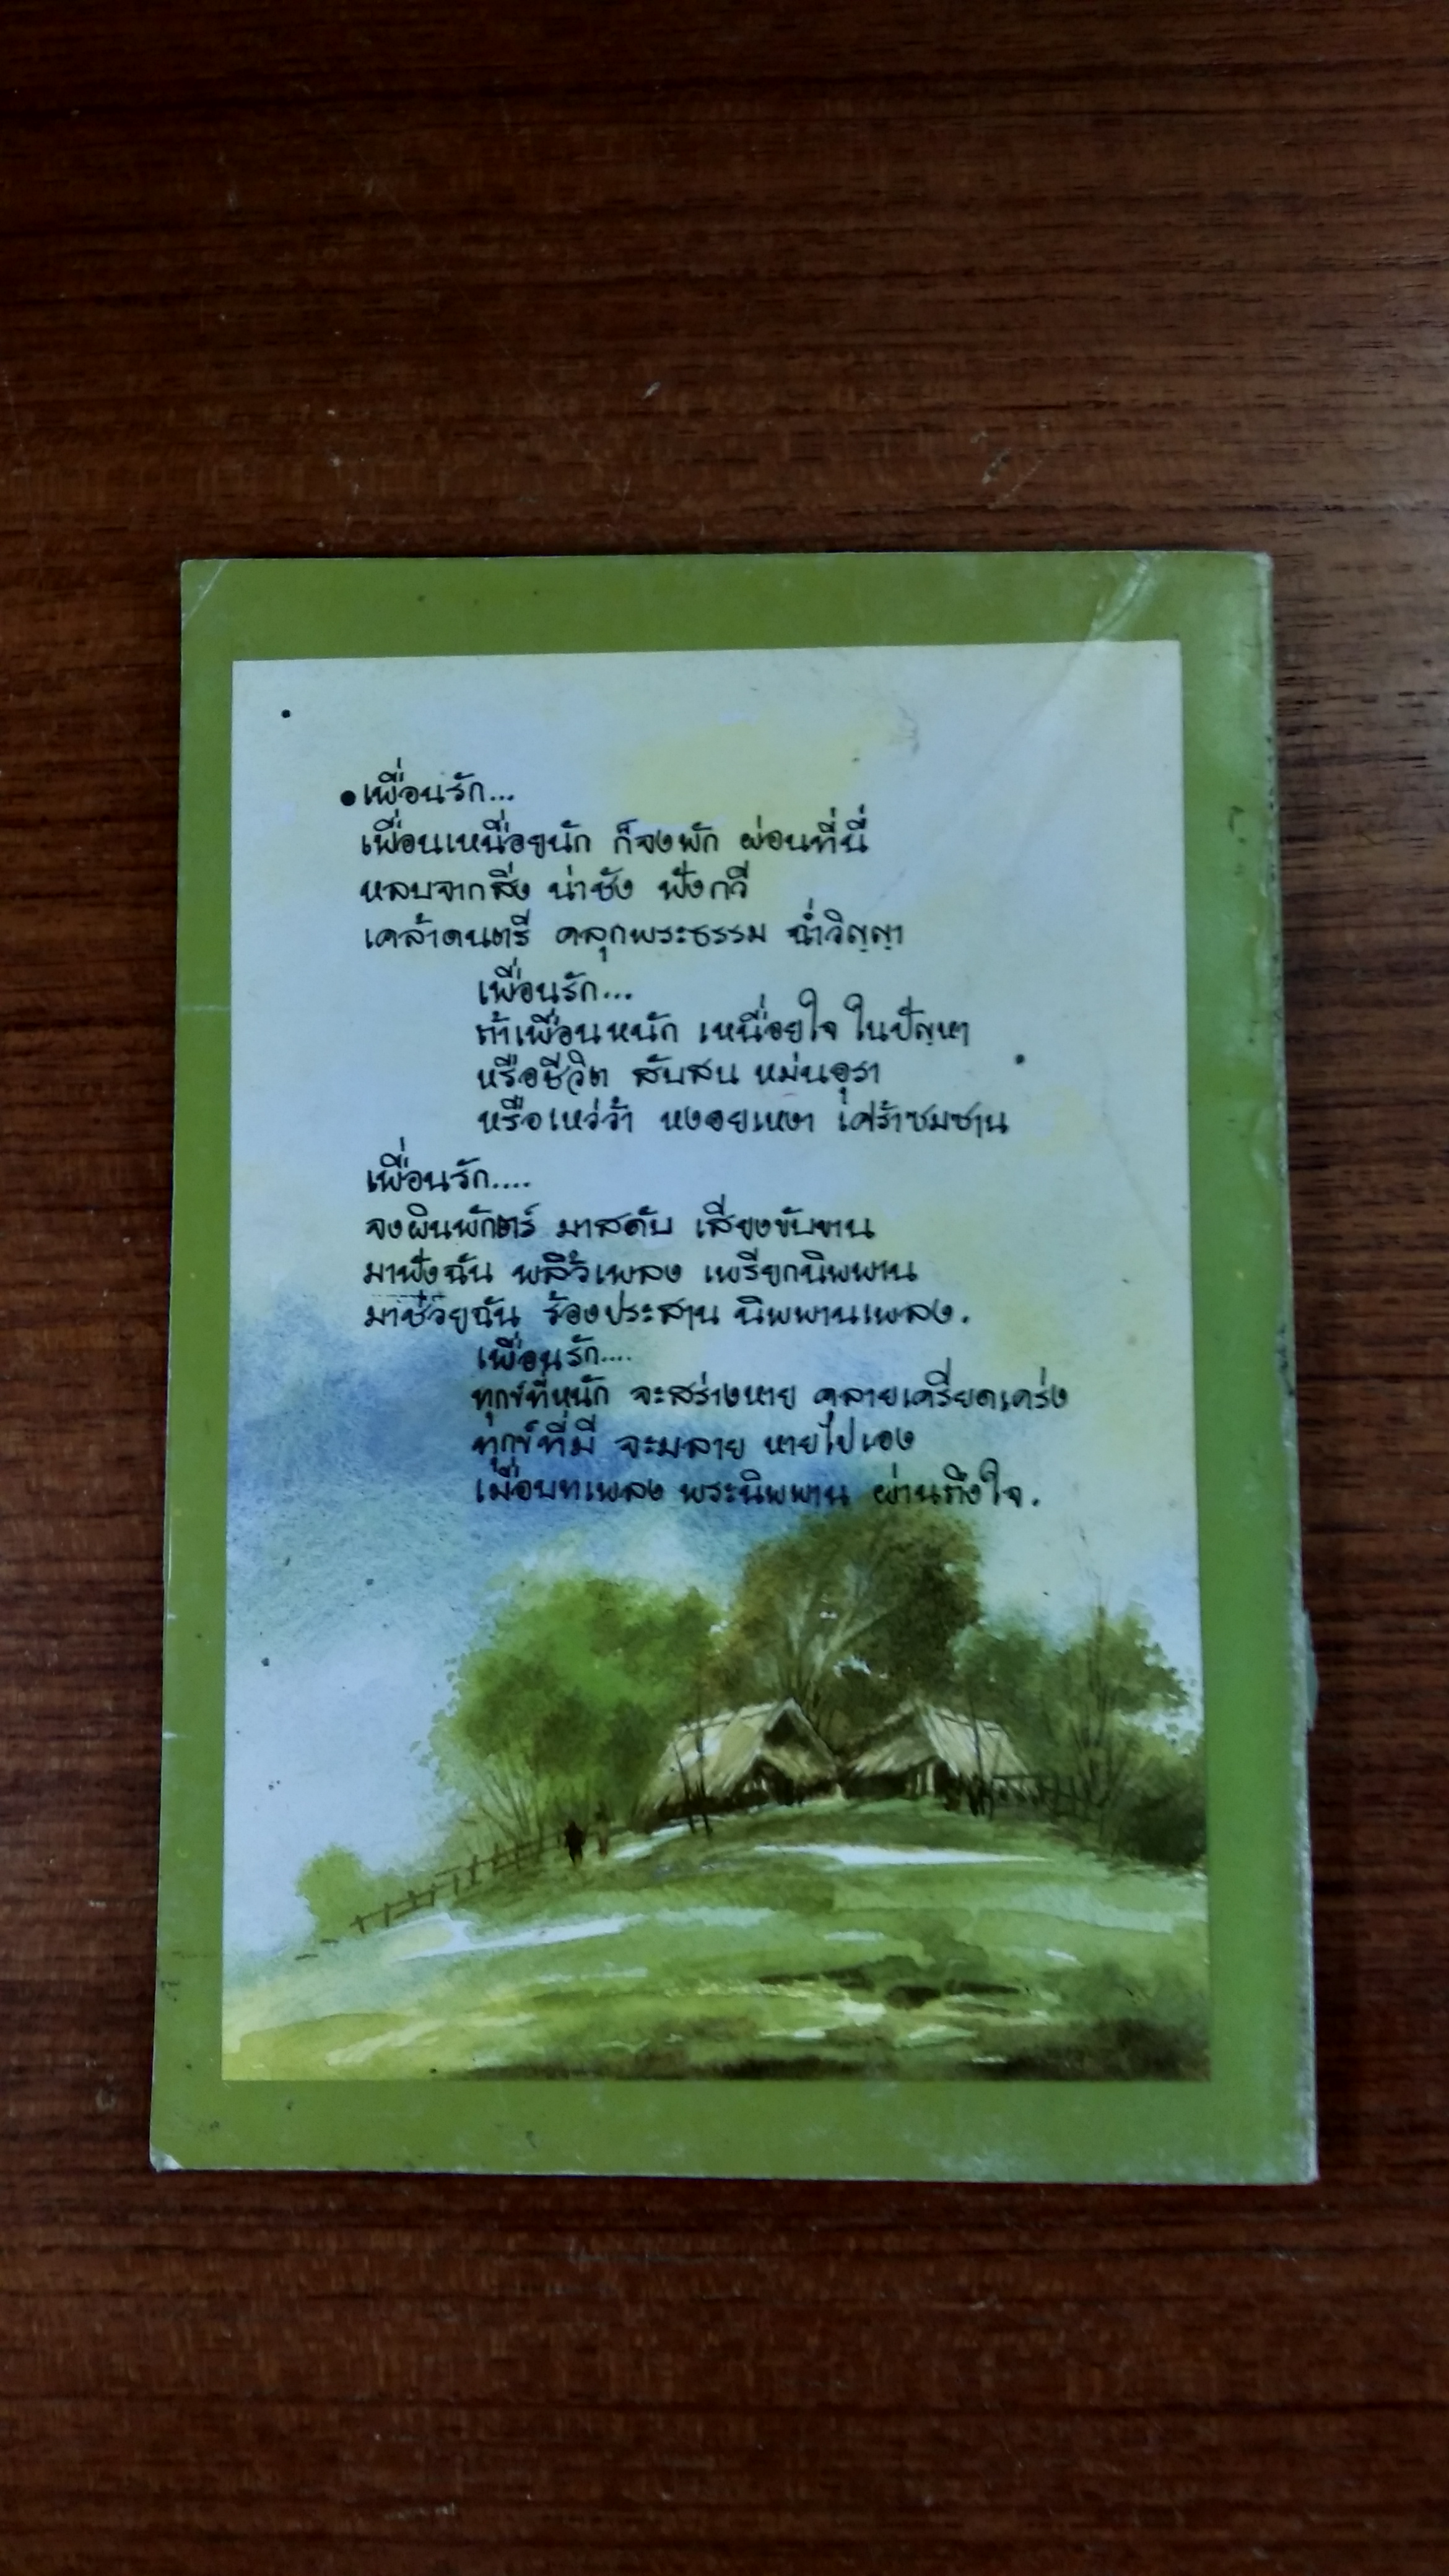 •เพื่อนรัก...
เพื่อนเหนื่อยนัก ก็จงพัก ผ่อนที่นี่
หลบจากสิ่ง น่าชัง ฟังกวี
เคล้าดนตรี คลุกพระธรรม ฉ่ำวิญญา
เพื่อนรัก...
ถ้าเพื่อนหนัก เหนื่อยใจ ในปัญหา
หรือชีวิต สับสน หม่นอุรา
หรือเหว่ว้า หงอยเหงา เศร้าซมซาน
เพื่อนรัก....
จงผินพักตร์ มาสดับ เสียงขับขาน
มาฟังฉัน พลิ้วเพลง เพรียกนิพพาน
มาช่วยฉัน ร้องประสาน นิพพานเพลง.
เพื่อนรัก....
ทุกข์ที่หนัก จะสร่างหาย คลายเครียดเคร่ง
ทุกข์ที่มี จะมลาย หายไปเอง
เมื่อบทเพลง พระนิพพาน ผ่านถึงใจ.